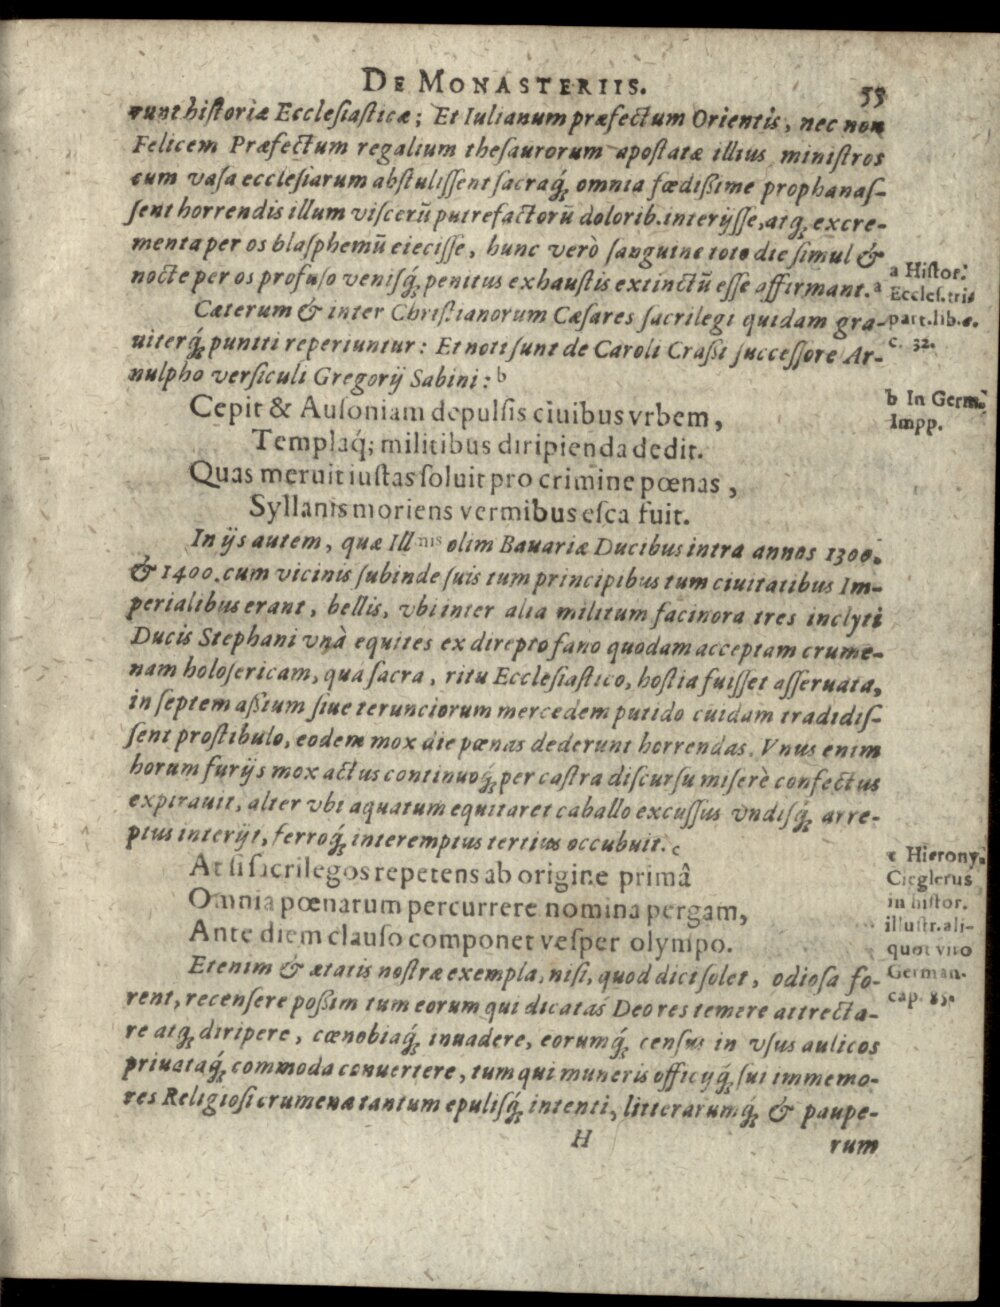 DE MONASTERIIS. 55
runt historiæ Ecclesiasticæ; Et Iulianum præfectum Orientis, nec non
Felicem Præfectum regalium thesaurorum apostatæ illius ministros
cum vasa ecclesiarum abstulissent sacraq́; omnia fœdißime prophanas-
sent horrendis illum viscerũ putrefactorũ dolorib. interijsse, atq́; excre-
menta per os blasphemũ eiecisse, hunc verò sanguine toto die simul &
nocte per os profuso venisq́; penitus exhaustis extinctũ esse affirmant. a
a Histor.
Eccles. tri-
part. lib. 6.
c. 32.
Cæterum & inter Christianorum Cæsares sacrilegi quidam gra-
uiterq́; puniti reperiuntur: Et noti sunt de Caroli Craßi successore Ar-
nulpho versiculi Gregorij Sabini: b
b In Germ.
Impp.
Cepit & Ausoniam depulsis ciuibus vrbem,
Templaq́; militibus diripienda dedit.
Quas meruit iustas soluit pro crimine pœnas,
Syllanis moriens vermibus esca fuit.
In ijs autem, quæ Ill nis olim Bauariæ Ducibus intra annos 1300.
& 1400. cum vicinis subinde suis tum principibus tum ciuitatibus Im-
perialibus erant, bellis, vbi inter alia militum facinora tres inclyti
Ducis Stephani vnà equites ex direpto fano quodam acceptam crume-
nam holosericam, qua sacra, ritu Ecclesiastico, hostia fuisset asseruata,
in septem aßium siue terunciorum mercedem putido cuidam tradidis-
sent prostibulo, eodem mox die pœnas dederunt horrendas. Vnus enim
horum furijs mox actus continuoq́; per castra discursu miserè confectus
expirauit, alter vbi aquatum equitaret caballo excussus vndisq́; arre-
ptus interijt, ferroq́; interemptus tertius occubuit. c
c Hierony.
Cieglerus
in histor.
illustr. ali-
quot viro
German.
cap. 85.
At si sacrilegos repetens ab origine primâ
Omnia pœnarum percurrere nomina pergam,
Ante diem clauso componet vesper olympo.
Etenim & ætatis nostræ exempla, nisi, quod dici solet, odiosa fo-
rent, recensere poßim tum eorum qui dicatas Deo res temere attrecta-
re atq́; diripere, cœnobiaq́; inuadere, eorumq́; census in vsus aulicos
priuataq́; commoda conuertere, tum qui muneris officijq́; sui immemo-
res Religiosi crumenæ tantum epulisq́; intenti, litterarumq́; & paupe-
H rum